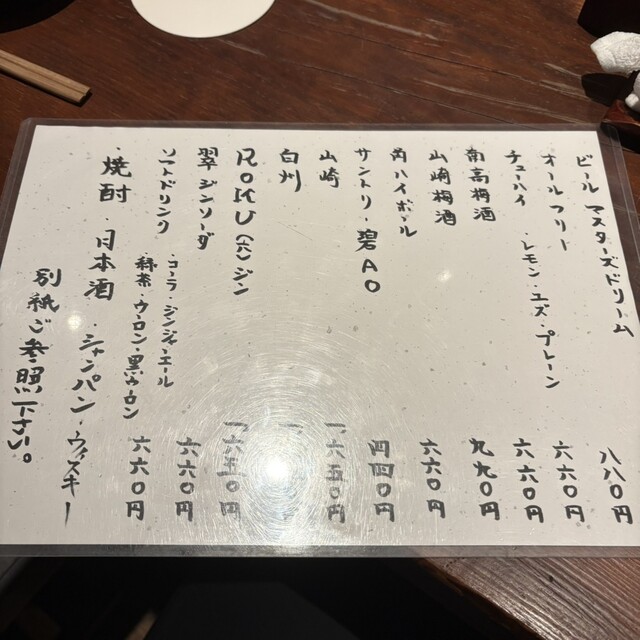 ビール マスターズドリーム 八八〇円
オールフリー 六六〇円
チューハイ ・レモン・ユズ・プレーン 六六〇円
南高梅酒 九九〇円
山崎梅酒 六六〇円
角ハイボール
サントリー・碧AO 四四〇円
山崎 一六五〇円
白州 一
ROKU(六)ジン 一六五〇円
翠ジンソーダ 六六〇円
ソフトドリンク ・コーラ・ジンジャーエール
茶・ウーロン・黒ウーロン 六六〇円
・焼酎・日本酒・シャンパン・ウィスキー
別紙ご参照下さい。